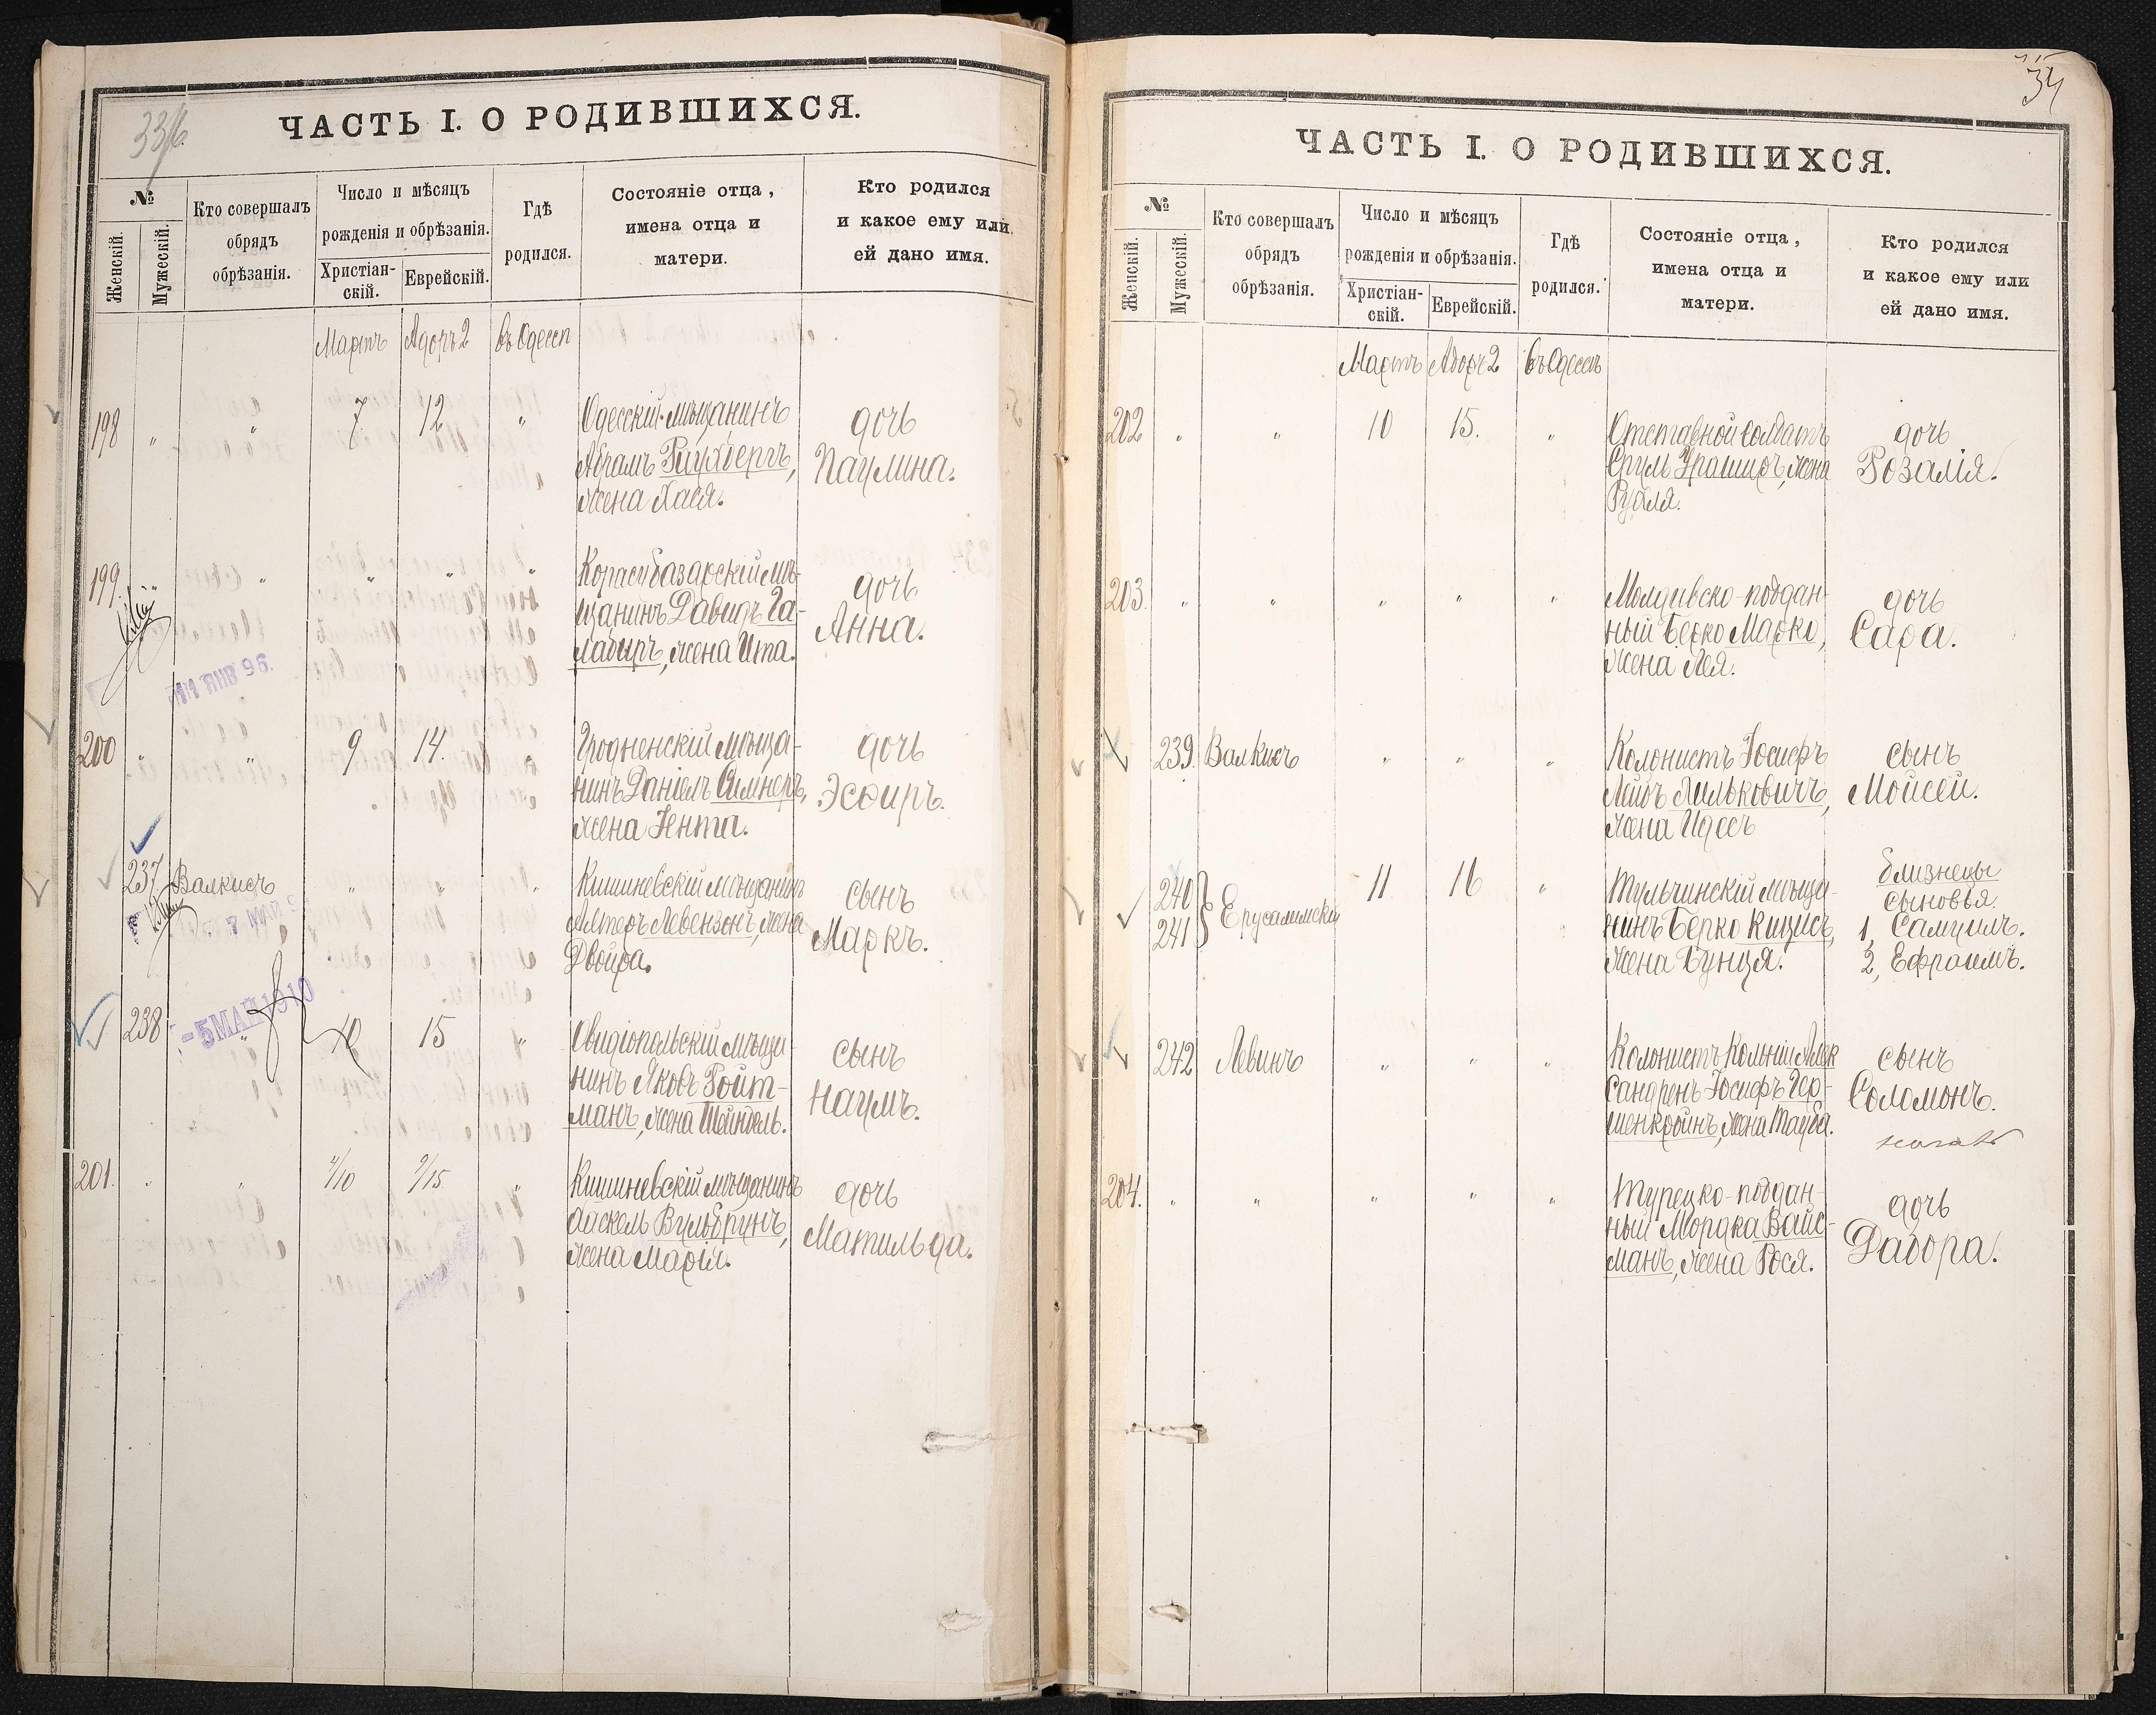 33/б.
ЧАСТЬ I. О РОДИВШИХСЯ.
№
Женскій.
Мужескій.
Кто совершалъ
обрядъ
обрѣзанія.
Число и мѣсяцъ
рожденія и обрѣзанія.
Христіан-
скій.
Еврейскій.
Гдѣ
родился.
Состояніе отца,
имена отца и
матери.
Кто родился
и какое ему или
ей дано имя.
Мартъ Адоръ 2 въ Одессѣ
198 " " 7 12 "
Одесскій мѣщанинъ
Абрамъ Раухбергъ,
жена Хася.
дочь
Паулина.
199. " " " " "
Корасубазарскій мѣ-
щанинъ Давидъ Га-
жена Ита.
дочь
Анна.
ЯНВ 96.
200 " " 9 14. "
Гродненскій мѣща-
нинъ Даніелъ
жена Іента.
дочь
Эсфирь.
237 Валкисъ " " "
Кишиневскій мѣщанинъ
Алтеръ Левензонъ, жена
Двойра.
сынъ
Маркъ.
7 МАЙ
- 5 МАЙ 1910
238 " 10 15 "
Овидіопольскій мѣща-
нинъ Яковъ Ройт-
манъ, жена Шейндль.
сынъ
Наумъ.
201. " " 4/10 9/15 "
Кишиневскій мѣщанинъ
Хаскель Вульбрунъ,
жена Марія.
дочь
Матильда.
34
ЧАСТЬ I. О РОДИВШИХСЯ.
№
Женскій.
Мужескій.
Кто совершалъ
обрядъ
обрѣзанія.
Число и мѣсяцъ
рожденія и обрѣзанія.
Христіан-
скій.
Еврейскій.
Гдѣ
родился.
Состояніе отца,
имена отца и
матери.
Кто родился
и какое ему или
ей дано имя.
Мартъ Адоръ 2 въ Одессѣ
202 " " 10 15. "
Отставной солдатъ
Сруль жена
Рухля.
дочь
Розалія.
203. " " " " "
Молдавско-поддан-
ный Берко Марко,
жена Лея.
дочь
Сара.
239. Валкисъ " " "
Колонистъ Іосифъ
Лейбъ Лильковичъ,
жена Идесъ
сынъ
Мойсей.
240
241 } Ерусалимскій 11 16 "
Тульчинскій мѣща-
нинъ Берко Кицисъ,
жена Бунця.
близнецы
сыновья.
1, Самуилъ.
2, Ефраимъ.
242 Левинъ " " "
Колонистъ Колоніи Алек
сандренъ Іосифъ Гер-
шенкройнъ, жена Тауба.
сынъ
Соломонъ.
204. " " " " "
Турецко-поддан-
ный Мордка Вайс-
манъ, жена Рося.
дочь
Дабора.